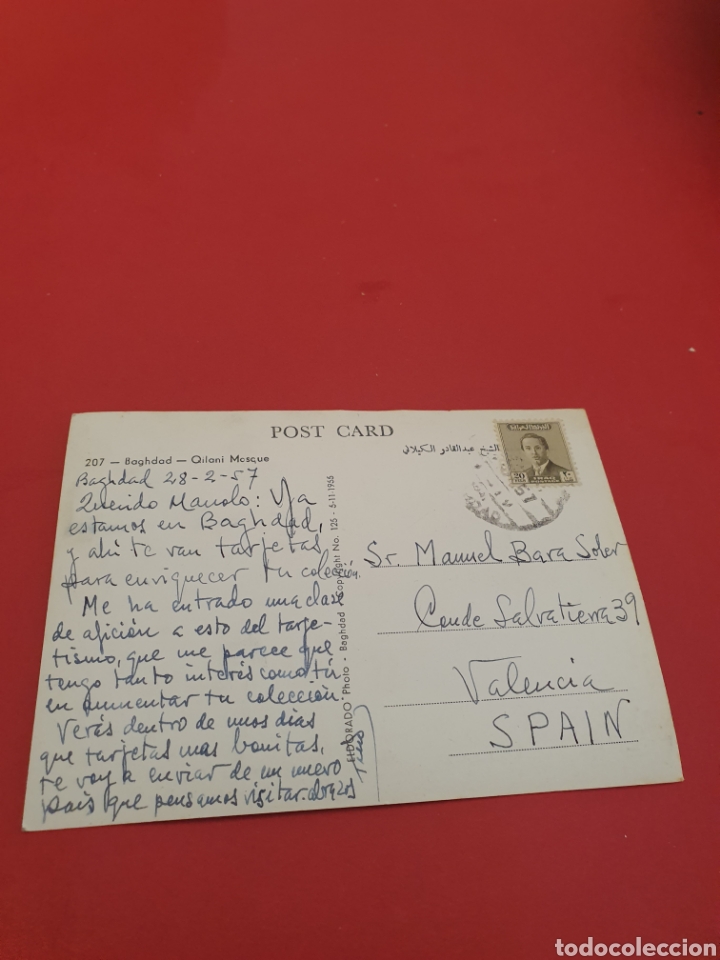 POST CARD
207 — Baghdad — Qilani Mosque
الشيخ عبدالقادر الكيلاني
Baghdad 28-2-57
Querido Manolo: Ya
estamos en Baghdad,
y ahí te van tarjetas
para enriquecer tu colección.
Me ha entrado una clase
de afición a esto del tarje-
tismo, que me parece que
tengo tanto interés como tú
en aumentar tu colección.
Verás dentro de unos dias
que tarjetas mas bonitas,
te voy a enviar de un nuevo
país que pensamos visitar. abrazos
ELDORADO Photo - Baghdad Copyright No. 125 - 5-11-1955
IRAQ
Sr. Manuel Bara Soler
Conde Salvatierra 39
Valencia
SPAIN
todocoleccion